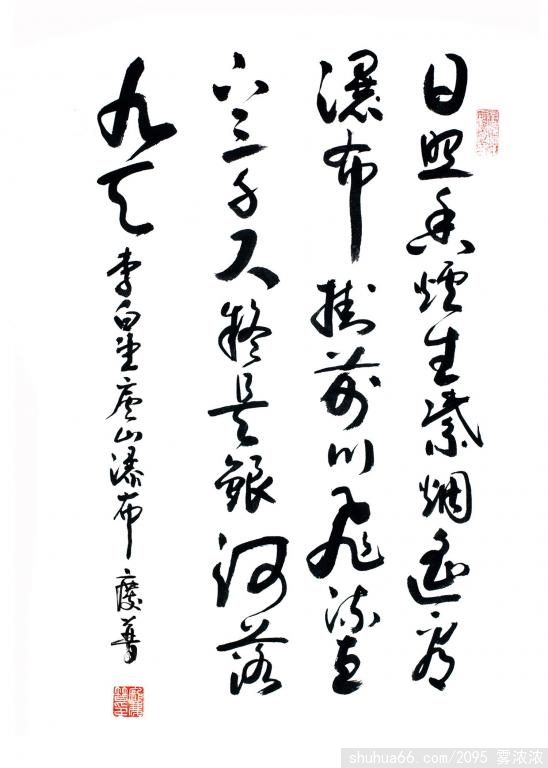 日照香爐生紫烟遥看
瀑布掛前川飛流直
下三千尺疑是銀河落
九天 李白望廬山瀑布
shuhua66.com/2095 雾浓浓